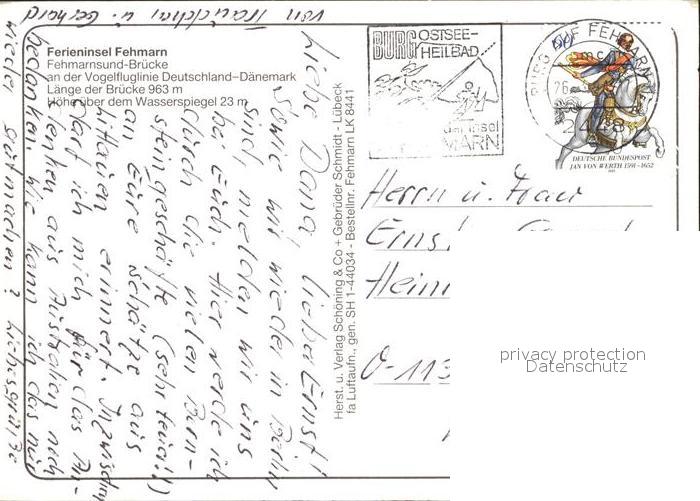 Ferieninsel Fehmarn
Fehmarnsund-Brücke
an der Vogelfluglinie Deutschland–Dänemark
Länge der Brücke 963 m
Höhe über dem Wasserspiegel 23 m
Liebe Dana, lieber Ernst!
Sowie wir wieder in Berlin
sind, melden wir uns
bei Euch. Hier werde ich
durch die vielen Bern-
steingeschäfte (sehr teuer!)
an Eure Schätze aus
Littauen erinnert. Inzwischen
darf ich mich für das An-
denken aus Australien noch
bedanken. Wie kann ich das nur
wieder gutmachen? Liebe Grüße
von u. Gerhard
Herst. u. Verlag Schöning & Co + Gebrüder Schmidt - Lübeck
fa Luftaufn., gen. SH 1-44034 - Bestellnr. Fehmarn LK 8441
BURG OSTSEE-
HEILBAD
der Insel
BURG AUF FEHMARN
2448
DEUTSCHE BUNDESPOST
JAN VON WERTH 1591-1652
Herrn u. Frau
O-113
privacy protection
Datenschutz